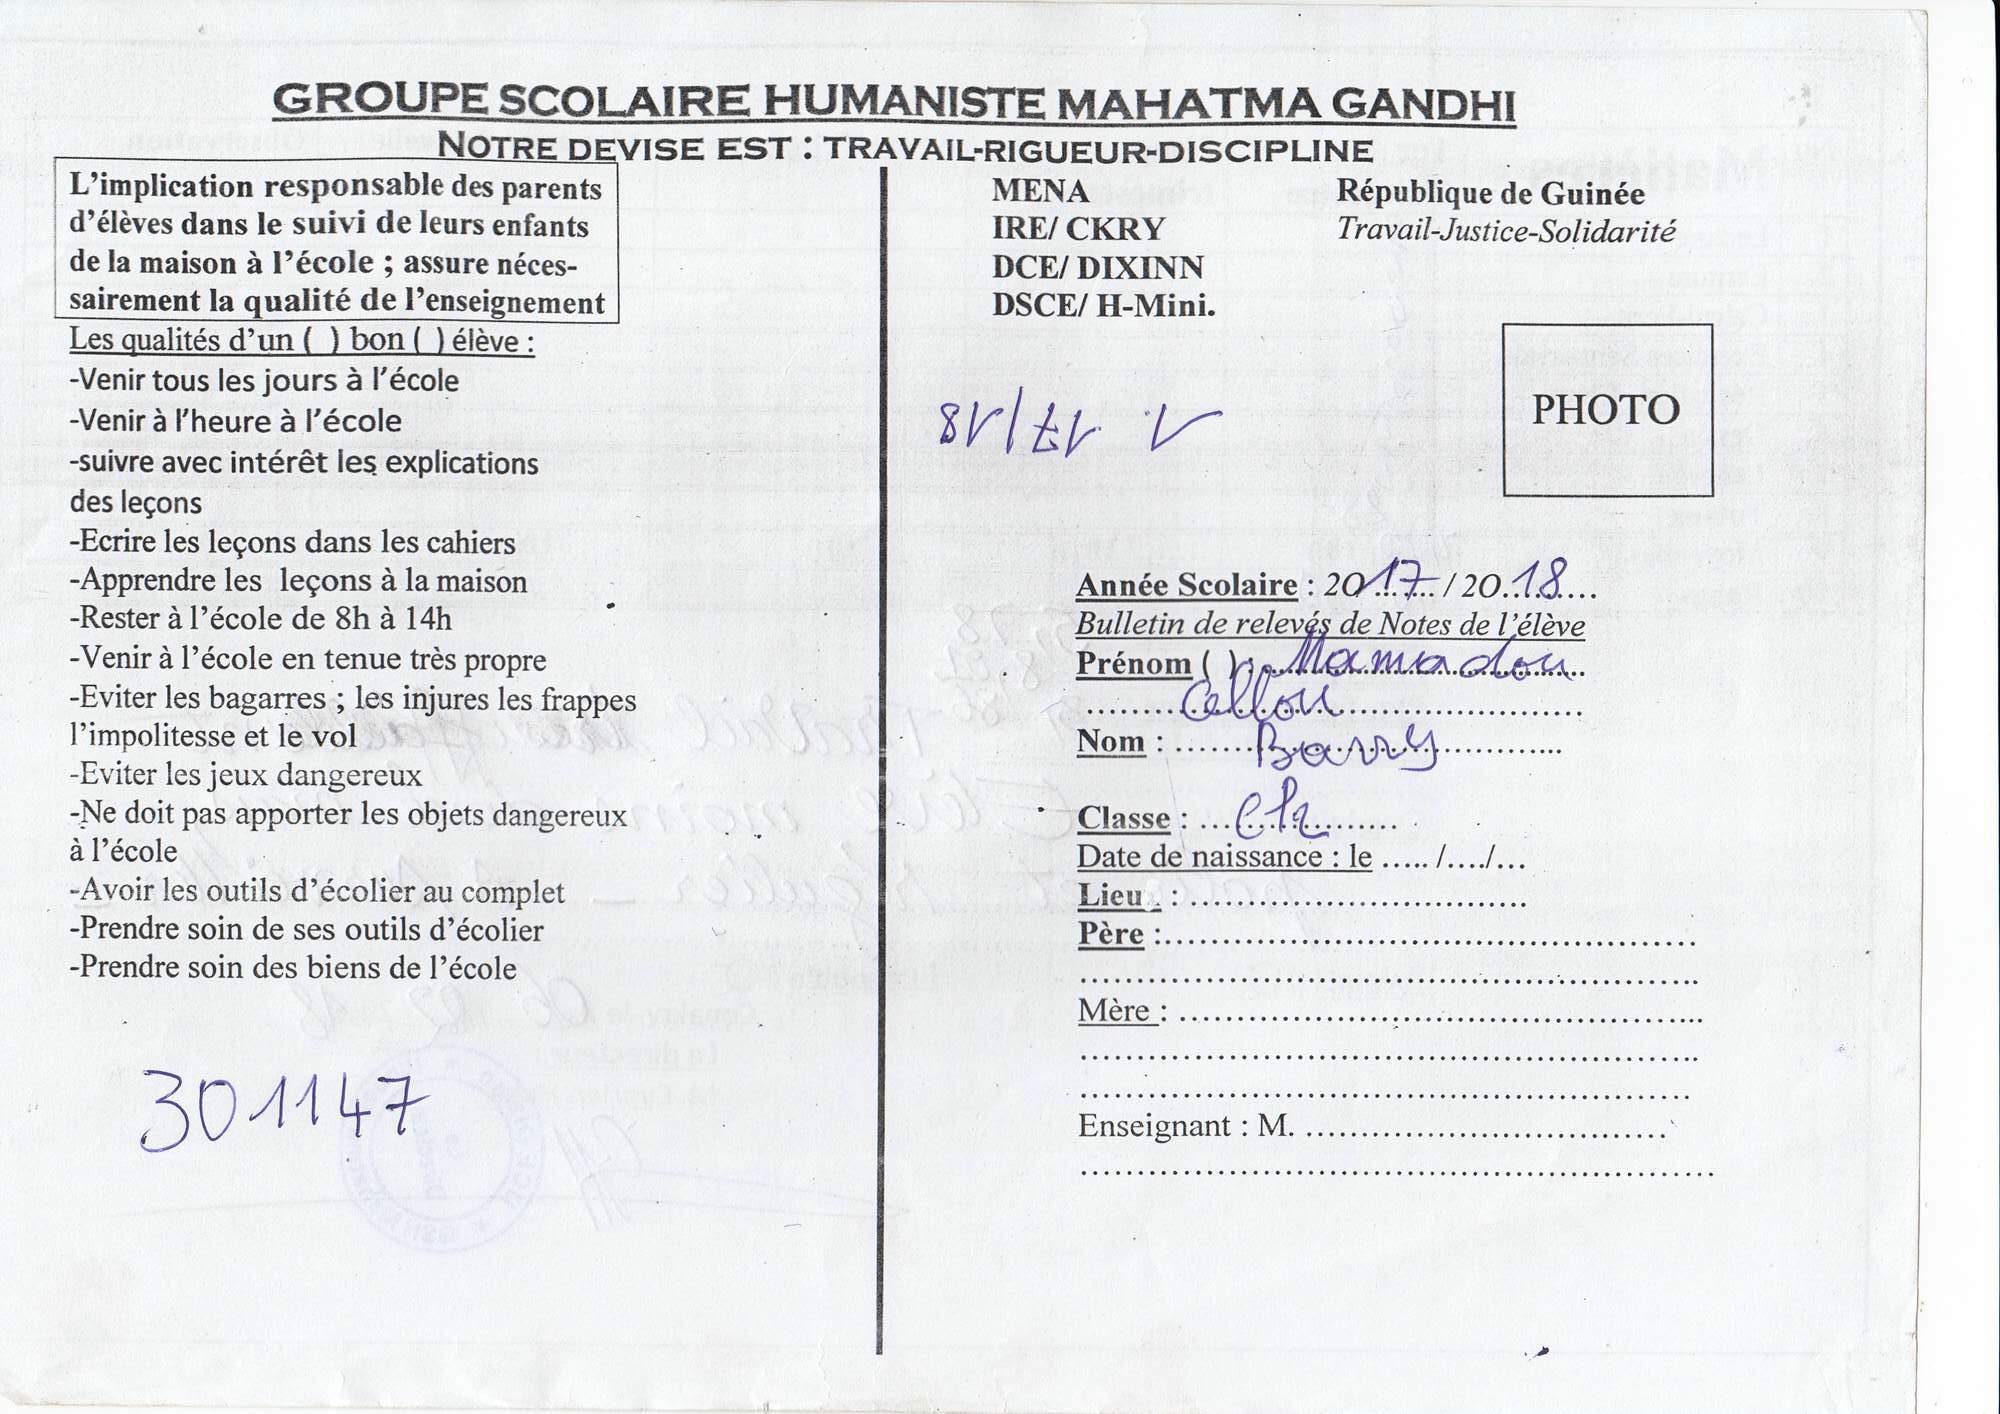 GROUPE SCOLAIRE HUMANISTE MAHATMA GANDHI
NOTRE DEVISE EST : TRAVAIL-RIGUEUR-DISCIPLINE
L'implication responsable des parents
d'élèves dans le suivi de leurs enfants
de la maison à l'école ; assure néces-
sairement la qualité de l'enseignement
Les qualités d'un ( ) bon ( ) élève :
-Venir tous les jours à l'école
-Venir à l'heure à l'école
-suivre avec intérêt les explications
des leçons
-Ecrire les leçons dans les cahiers
-Apprendre les leçons à la maison
-Rester à l'école de 8h à 14h
-Venir à l'école en tenue très propre
-Eviter les bagarres ; les injures les frappes
l'impolitesse et le vol
-Eviter les jeux dangereux
-Ne doit pas apporter les objets dangereux
à l'école
-Avoir les outils d'écolier au complet
-Prendre soin de ses outils d'écolier
-Prendre soin des biens de l'école
301147
MENA
IRE/ CKRY
DCE/ DIXINN
DSCE/ H-Mini.
République de Guinée
Travail-Justice-Solidarité
PHOTO
17/18
Année Scolaire : 2017 / 2018
Bulletin de relevés de Notes de l'élève
Prénom ( ) : Mamadou
Cellou
Nom : Barry
Classe :
Date de naissance : le ..... /..../...
Lieu :
Père :
Mère :
Enseignant : M.